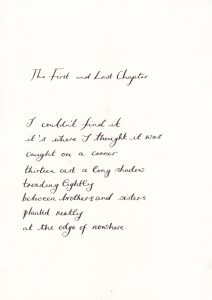 The First and Last Chapter
I couldn't find it
it's where I thought it was
caught on a corner
thirteen cast a long shadow
treading lightly
between brothers and sisters
planted neatly
at the edge of nowhere